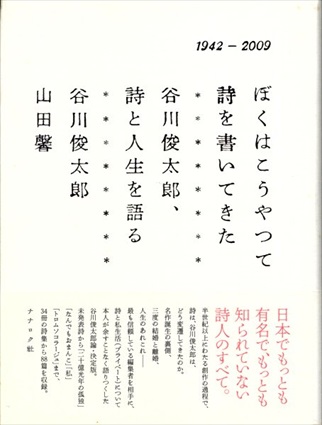 1942 – 2009
ぼくはこうやって
詩を書いてきた
＊＊＊＊＊＊＊＊
谷川俊太郎、
詩と人生を語る
＊＊＊＊＊＊＊＊
谷川俊太郎
山田馨
日本でもっとも
有名で、もっとも
知られていない
詩人のすべて。
半世紀以上にわたる創作の過程で、
詩は、谷川俊太郎は、
どう変遷してきたのか。
名作誕生の裏側、
三度の結婚と離婚、
人生のあれこれ——
最も信頼している編集者を相手に、
詩と私生活（プライベート）について
本人が余すことなく語りつくした
谷川俊太郎論・決定版。
未発表詩から「二十億光年の孤独」
「なんでもおまんこ」「私」
「トロムソコラージュ」まで、
34冊の詩集から88篇を収録。
ナナロク社